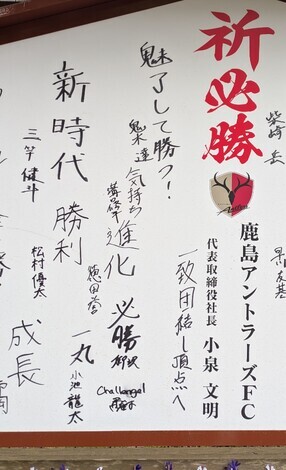 柴崎 岳
祈必勝
鹿島アントラーズFC
代表取締役社長 小泉 文明
一致団結し頂点へ
魅了して勝つ!
鬼木 達
気持ち
進化
必勝
柳沢
Challenge!
新時代
勝利
徳田 誉
一丸
小池 龍太
三竿 健斗
松村 優太
成長